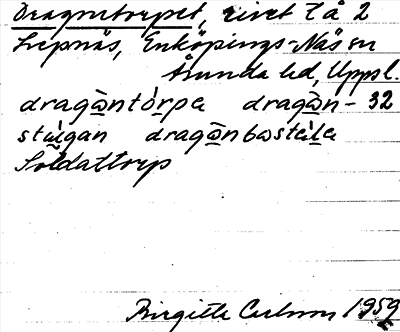 Dragontorpet, rivet l å 2
Lepnäs, Enköpings-Näs sn
Trunda hd, Uppl.
dragòntórpa dragòn- 32
stúgan dragònbostäla
Soldattorp
Birgitta Carlsson 1959